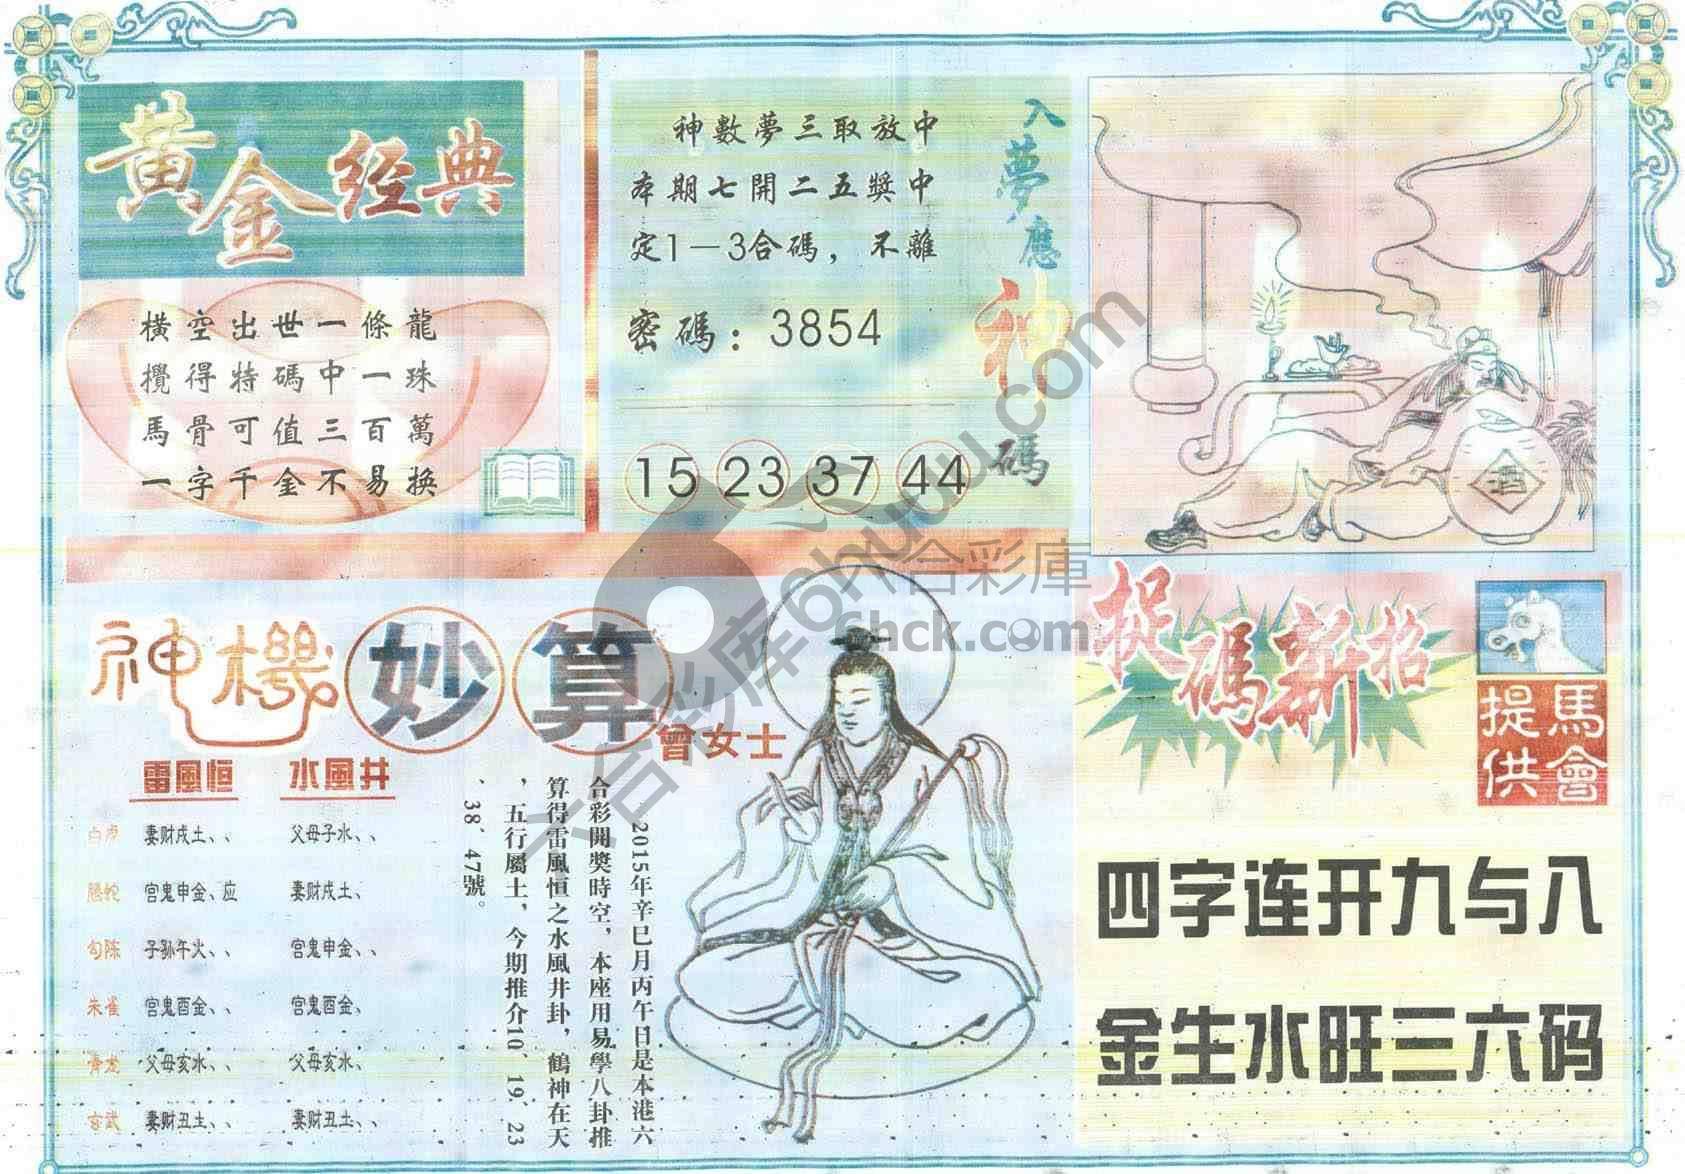 黄金经典
橫空出世一條龍
攪得特碼中一珠
馬骨可值三百萬
一字千金不易换
入夢應神碼
神數夢三取放中
本期七開二五獎中
定1－3合碼，不離
密碼：3854
15 23 37 44
酒
神機妙算
曾女士
雷風恒 水風井
白虎 妻财戌土、、 父母子水、、
腾蛇 官鬼申金、、应 妻财戌土、
勾陈 子孙午火、、 官鬼申金、、
朱雀 官鬼酉金、、 官鬼酉金、
青龙 父母亥水、、 父母亥水、
玄武 妻财丑土、、 妻财丑土、、
2015年辛巳月丙午日是本港六
合彩開獎時空，本座用易學八卦推
算得雷風恒之水風井卦，鶴神在天
，五行屬土，今期推介10、19、23
、38、47號。
捉碼新招
馬會提供
四字连开九与八
金生水旺三六码
六合彩库6huuu.com
六合彩庫
6hck.com